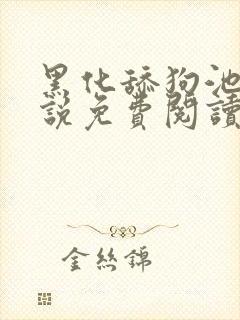 黑化舔狗池
說免費閱讀
金絲錦